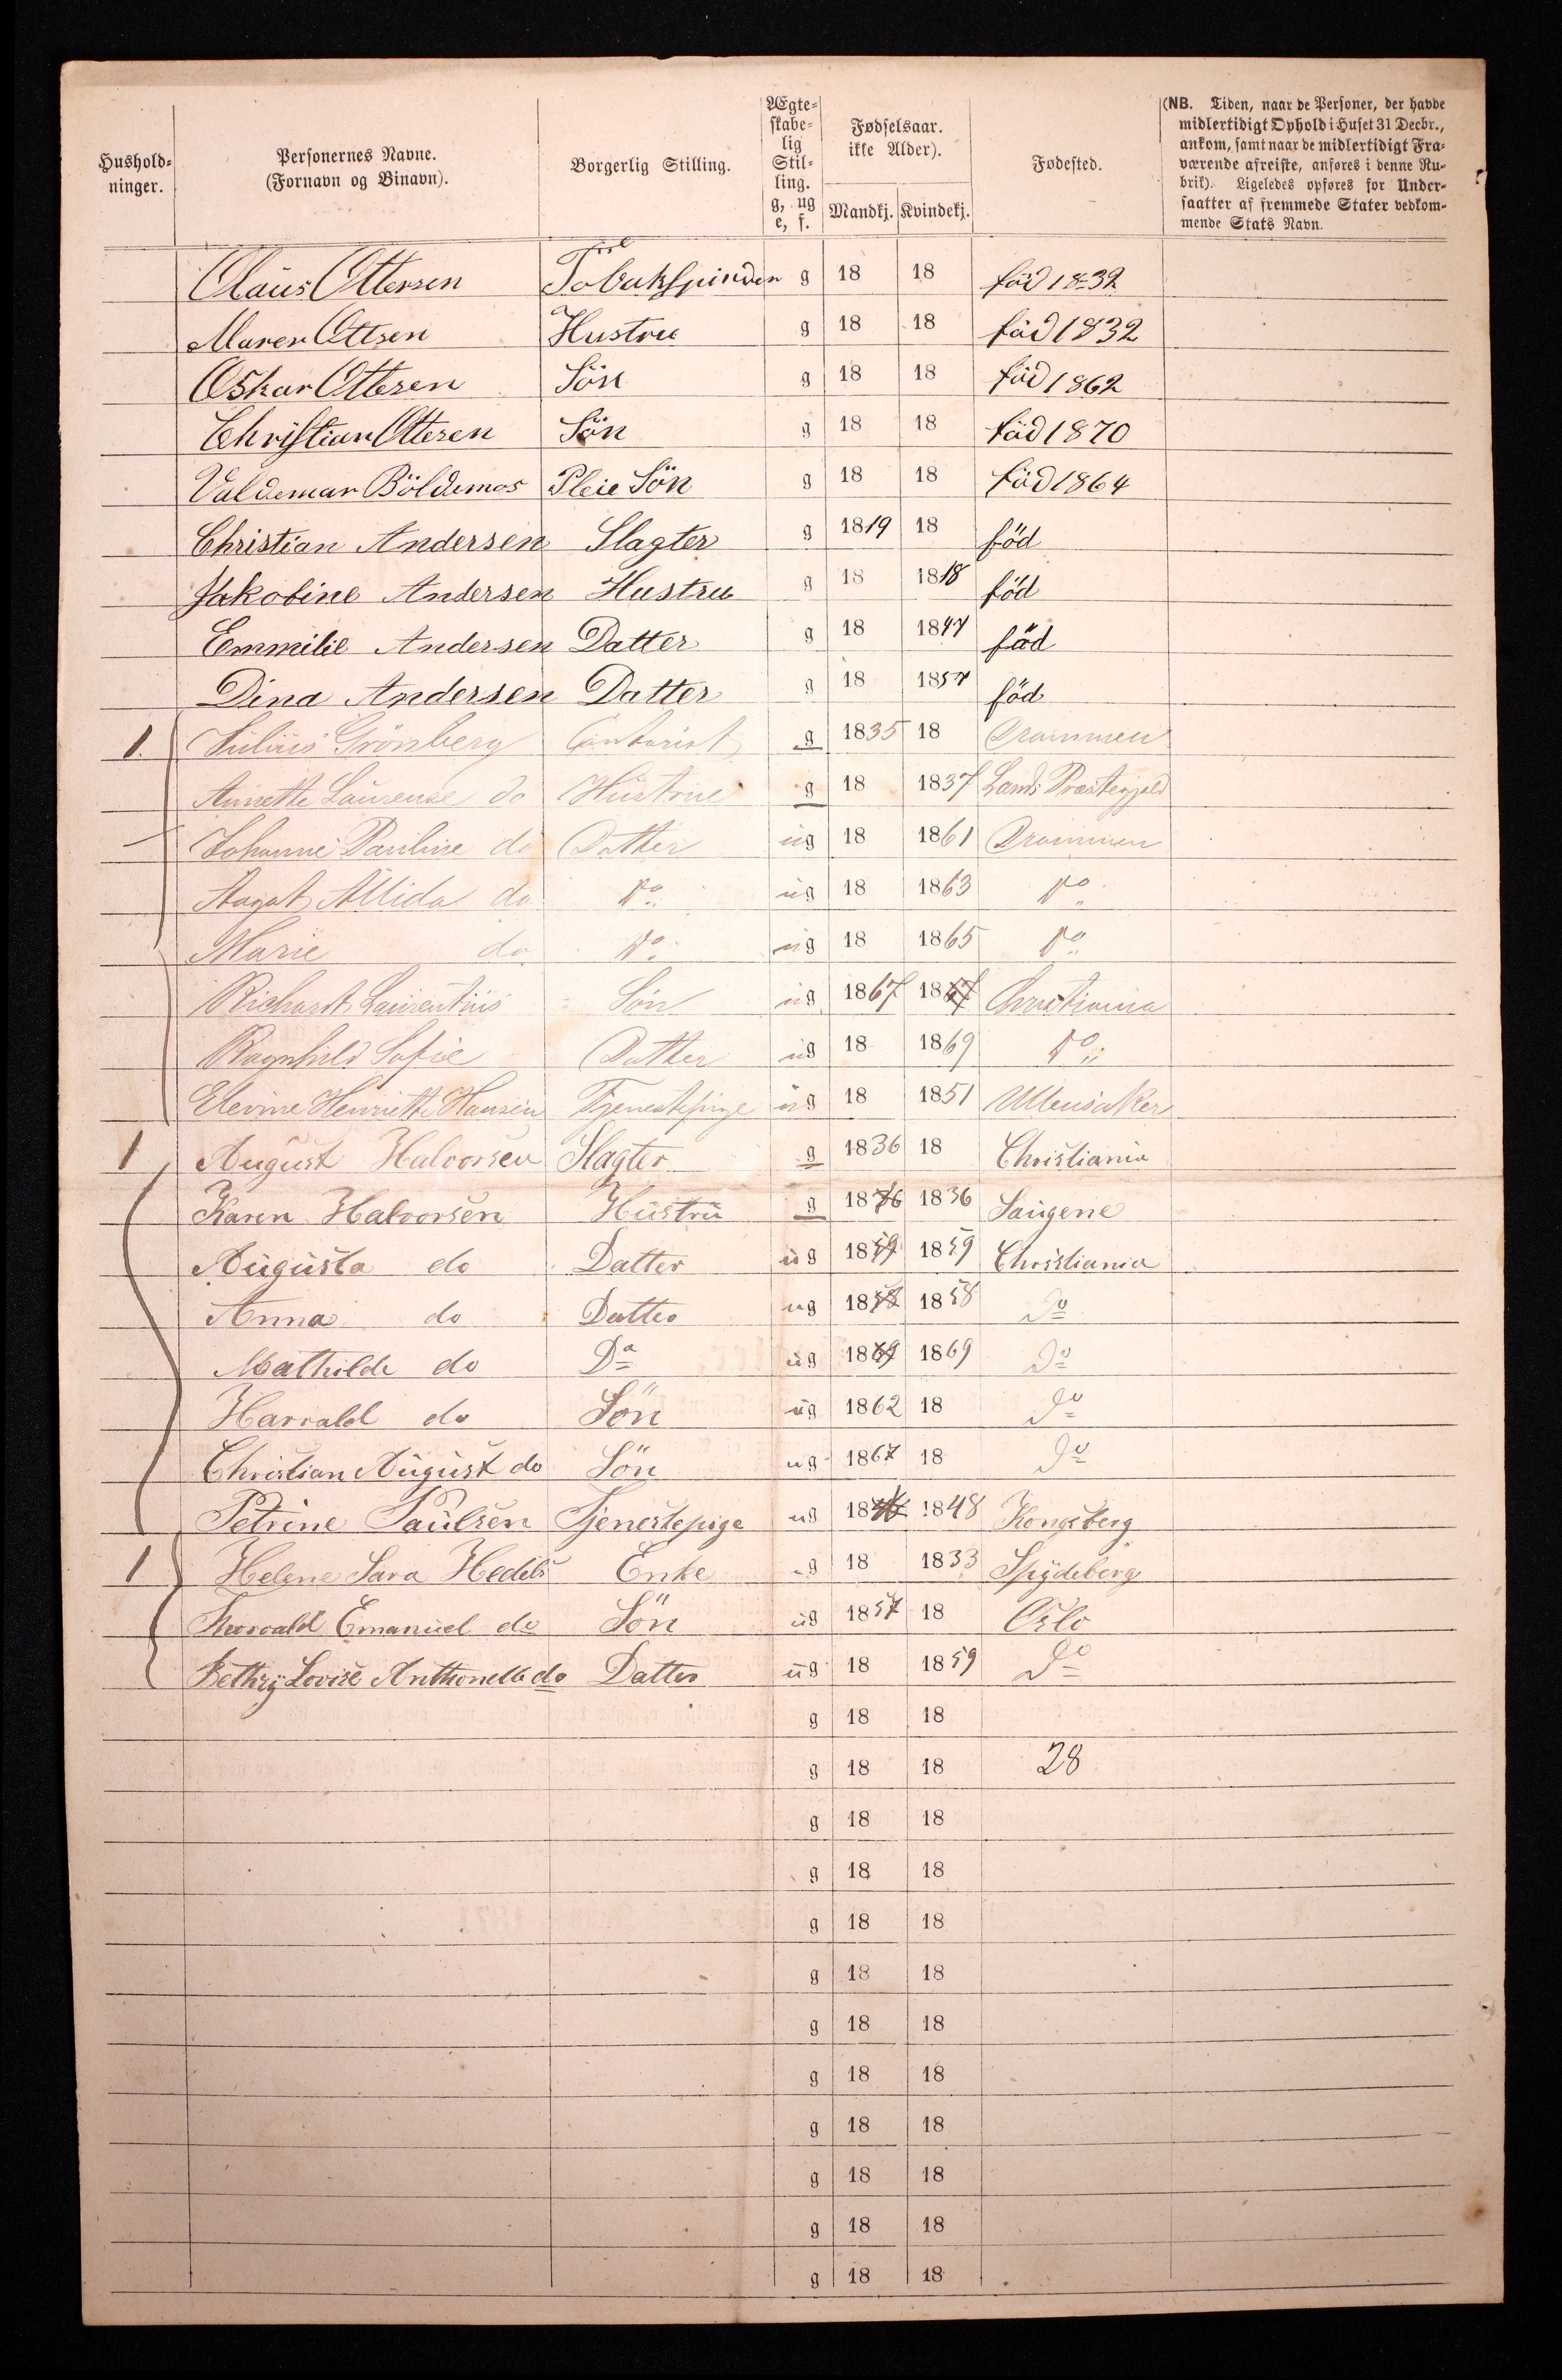 Hushold-
ninger.
Personernes Navne.
(Fornavn og Binavn).
Borgerlig Stilling.
Ægte-
skabe-
lig
Stil-
ling.
g, ug
e, f.
Fødselsaar.
ikke Alder).
Mandkj. Kvindekj.
Fødested.
(NB. Tiden, naar de Personer, der havde
midlertidigt Ophold i Huset 31 Decbr.,
ankom, samt naar de midlertidigt Fra-
værende afreiste, anføres i denne Ru-
brik). Ligeledes opføres for Under-
saatter af fremmede Stater vedkom-
mende Stats Navn.
Claus Ottersen Tobakspinder g 18 18 föd 1832
Maren Ottsen Hustru g 18 18 föd 1832
Oskar Ottesen Sön g 18 18 föd 1862
Christian Ottesen Sön g 18 18 föd 1870
Valdemar Böldemos Pleie Sön g 18 18 föd 1864
Christian Andersen Slagter g 1819 18 föd
Jakobine Andersen Hustru g 18 1818 föd
Emmilie Andersen Datter g 18 1847 föd
Dina Andersen Datter g 18 1857 föd
1. Julius Grönberg Contorist g 1835 18 Drammen
Annette Laurense do Hustrue g 18 1837 Lands Præstegjeld
Johanne Pauline do Datter ug 18 1861 Drammen
Aagot Allida do Do ug 18 1863 Do
Marie do Do ug 18 1865 Do
Richardt Laurentius Sön ug 1867 1867 Christiania
Ragnhild Sofie Datter ug 18 1869 Do
Elevine Henriette Hansen Tjenestepige ug 18 1851 Ullensaker
1 August Halvorsen Slagter g 1836 18 Christiania
Karen Halvorsen Hustru g 1836 1836 Saugene
Augusta do Datter ug 1859 1859 Christiania
Anna do Datter ug 1858 1858 Do
Mathilde do Da ug 1869 1869 Do
Harrald do Sön ug 1862 18 Do
Christian August do Sön ug 1867 18 Do
Petrine Paulsen Tjenestepige ug 1848 Kongsberg
1 Helene Sara Hedels Enke g 18 1833 Spydeberg
Thorvald Emanuel do Sön ug 1857 18 Oslo
Bethzy Lovise Anthonette do Datter ug 18 1859 Do
g 18 18
g 18 18 28
g 18 18
g 18 18
g 18 18
g 18 18
g 18 18
g 18 18
g 18 18
g 18 18
g 18 18
g 18 18